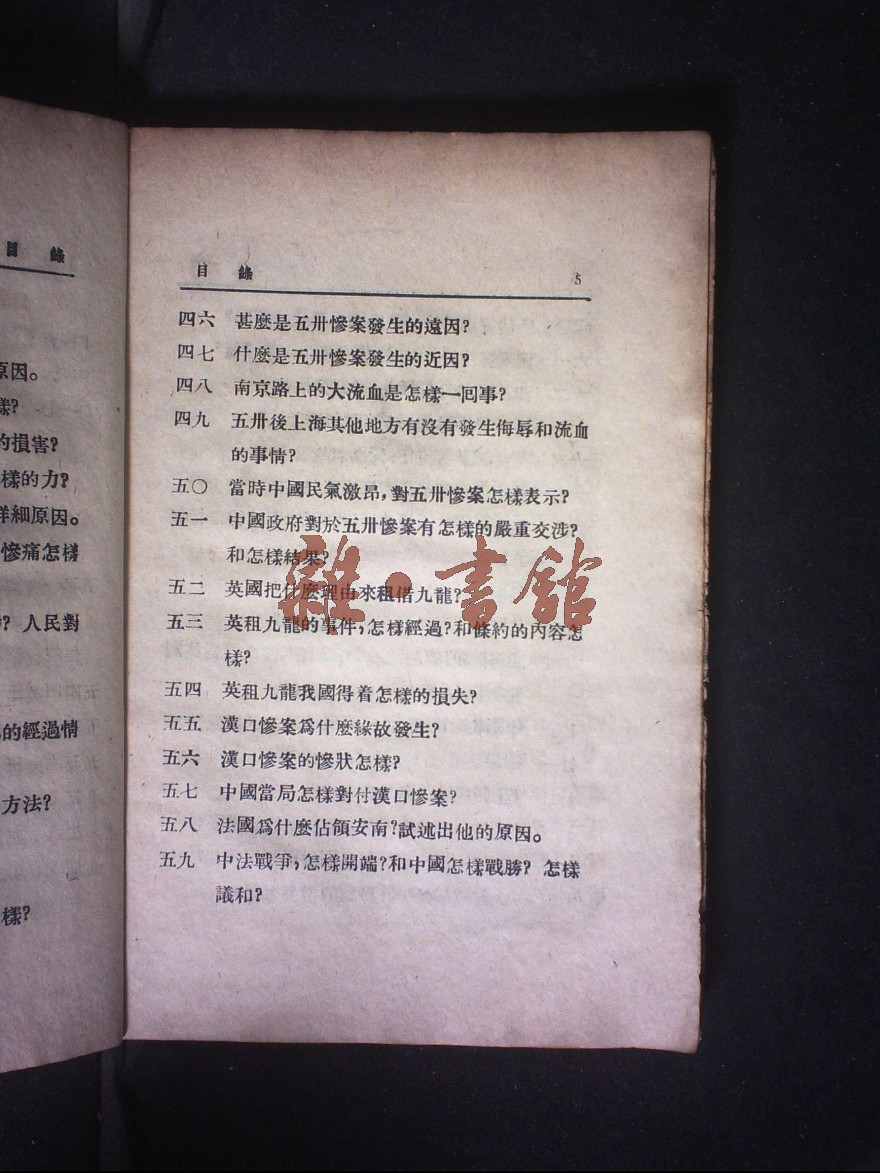 目錄
原因。
樣?
的損害?
樣的力?
詳細原因。
慘痛怎樣
? 人民對
的經過情
方法?
樣?
目錄 5
四六 甚麼是五卅慘案發生的遠因?
四七 什麼是五卅慘案發生的近因?
四八 南京路上的大流血是怎樣一囘事?
四九 五卅後上海其他地方有沒有發生侮辱和流血
的事情?
五〇 當時中國民氣激昂,對五卅慘案怎樣表示?
五一 中國政府對於五卅慘案有怎樣的嚴重交涉?
和怎樣結果?
五二 英國把什麼理由來租借九龍?
五三 英租九龍的事件,怎樣經過?和條約的內容怎
樣?
五四 英租九龍我國得着怎樣的損失?
五五 漢口慘案爲什麼緣故發生?
五六 漢口慘案的慘狀怎樣?
五七 中國當局怎樣對付漢口慘案?
五八 法國爲什麼佔領安南?試述出他的原因。
五九 中法戰爭,怎樣開端?和中國怎樣戰勝? 怎樣
議和?
雜·書館